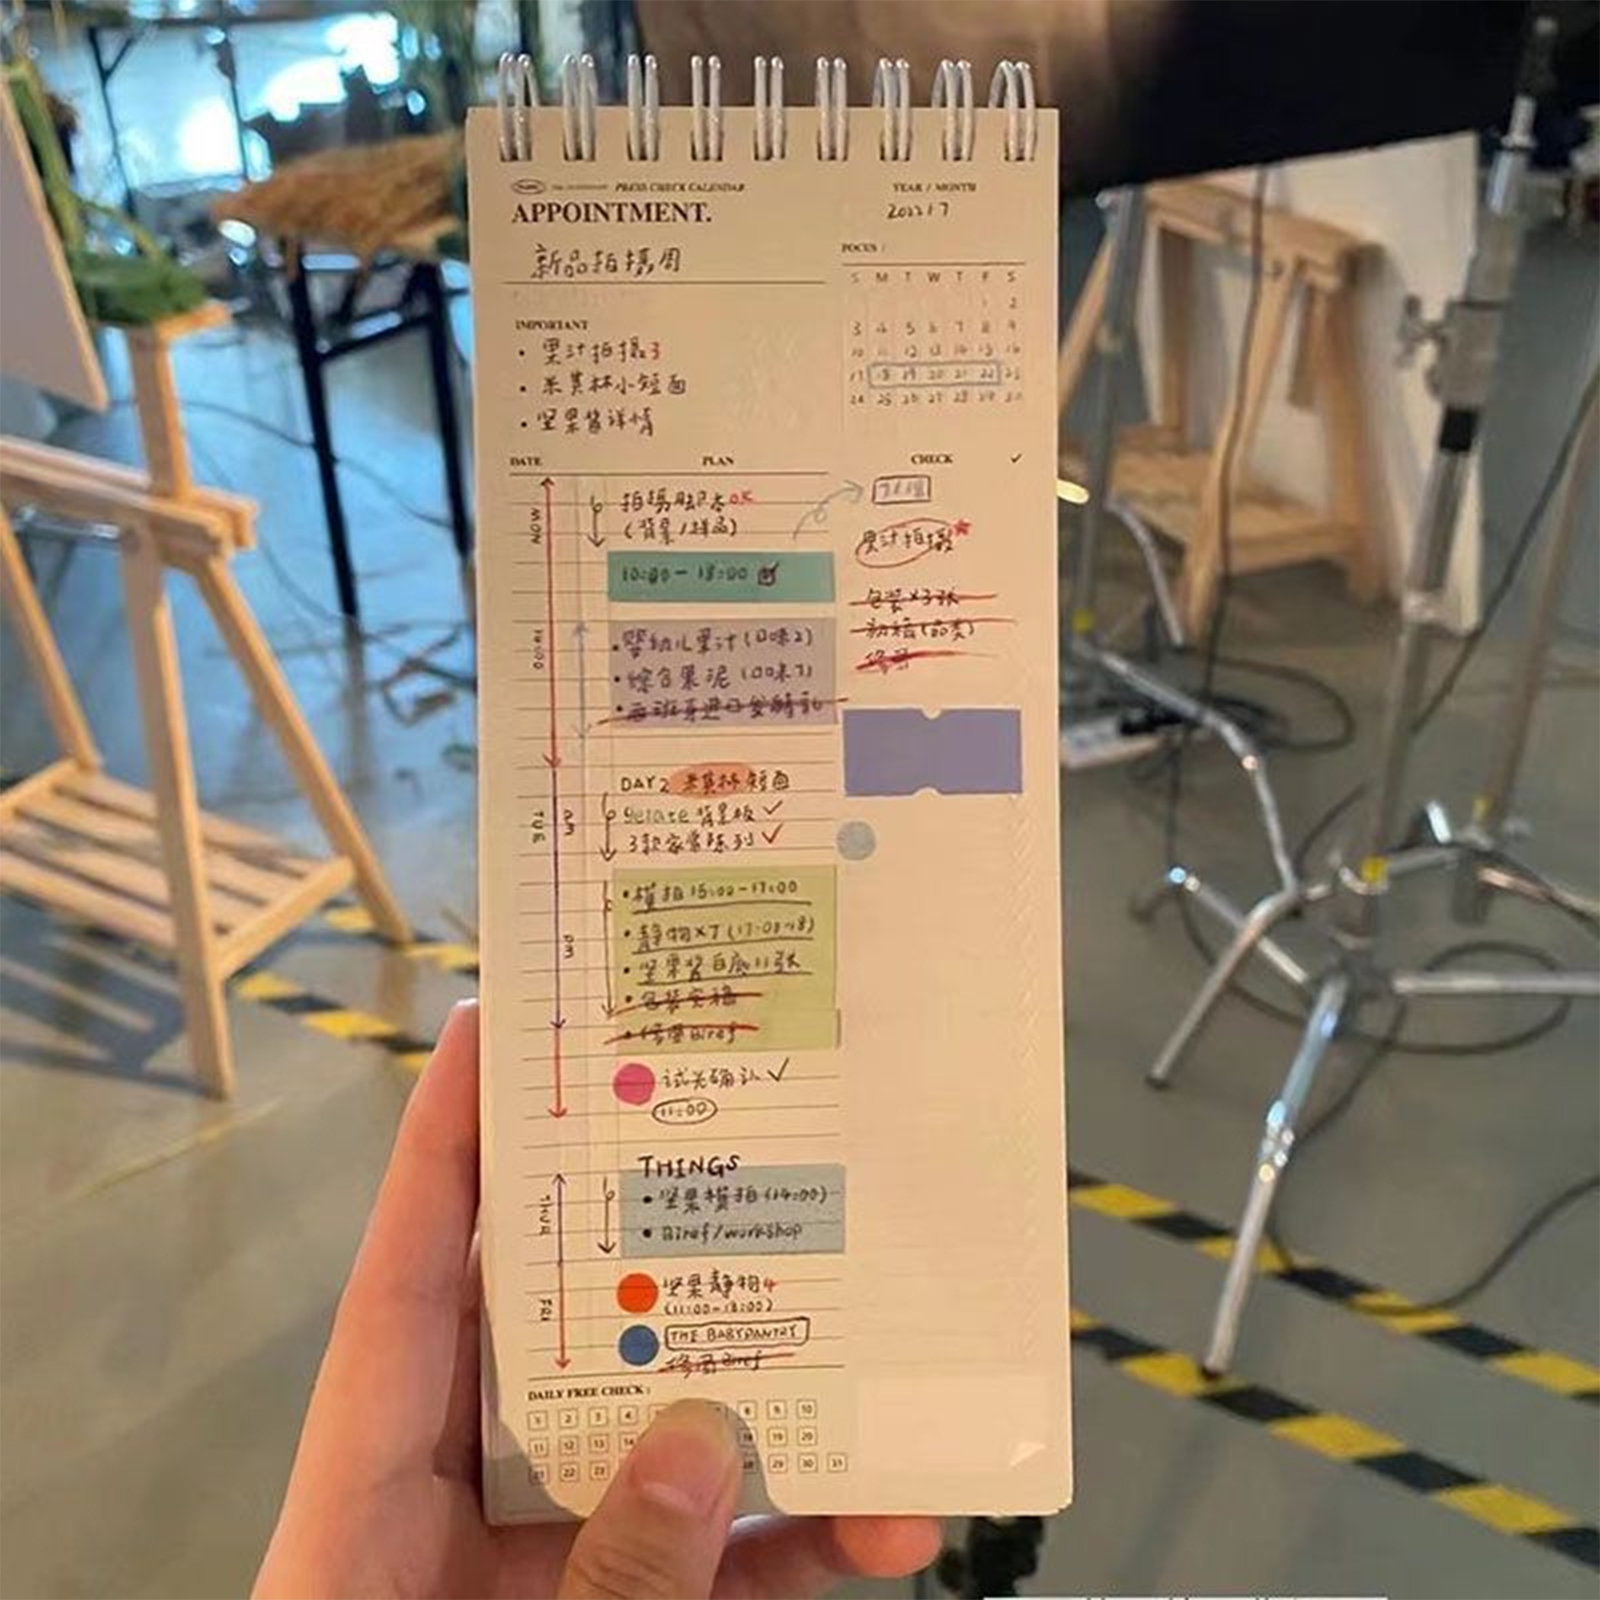 PRESS CHECK CALENDAR
APPOINTMENT.
新品拍摄周
YEAR / MONTH
2022 / 7
FOCUS /
S M T W T F S
1 2
3 4 5 6 7 8 9
10 11 12 13 14 15 16
17 18 19 20 21 22 23
24 25 26 27 28 29 30
IMPORTANT
• 果汁拍摄3
• 米其林小短面
• 坚果酱详情
DATE PLAN CHECK ✓
MON
拍摄脚本OK
(背景/样品)
10:00 - 18:00
14:00
• 婴幼儿果汁(口味2)
• 综合果泥(口味7)
• 西班牙进口
果汁拍摄
包装×3张
(品类)
TUE
DAY2 米其林短面
am
gelate 背景板 ✓
3款家常陈列 ✓
pm
• 横拍 15:00-17:00
• 静物×7(17:00-18)
• 坚果酱白底11张
• 包装
• Biref
试光确认 ✓
11:00
THINGS
THUR
• 坚果横拍(14:00)
• Biref/workshop
FRI
坚果静物4
(11:00-18:00)
THE BABYPANTRY
Biref
DAILY FREE CHECK :
1 2 3 4 8 9 10
11 12 13 14 18 19 20
21 22 23 28 29 30 31